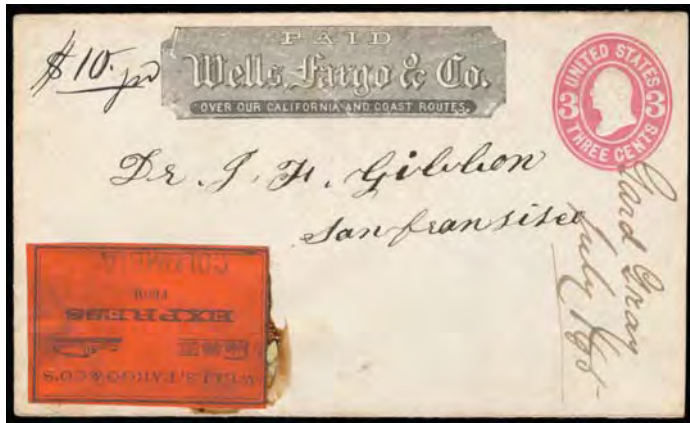 $10. pd
PAID
Wells, Fargo & Co.
OVER OUR CALIFORNIA AND COAST ROUTES.
UNITED STATES
3 3
THREE CENTS
Dr. J. H. Gibbon
San fransisco
Gard Gray
July 1865
WELLS, FARGO & CO'S
EXPRESS
FROM
COLUMBIA